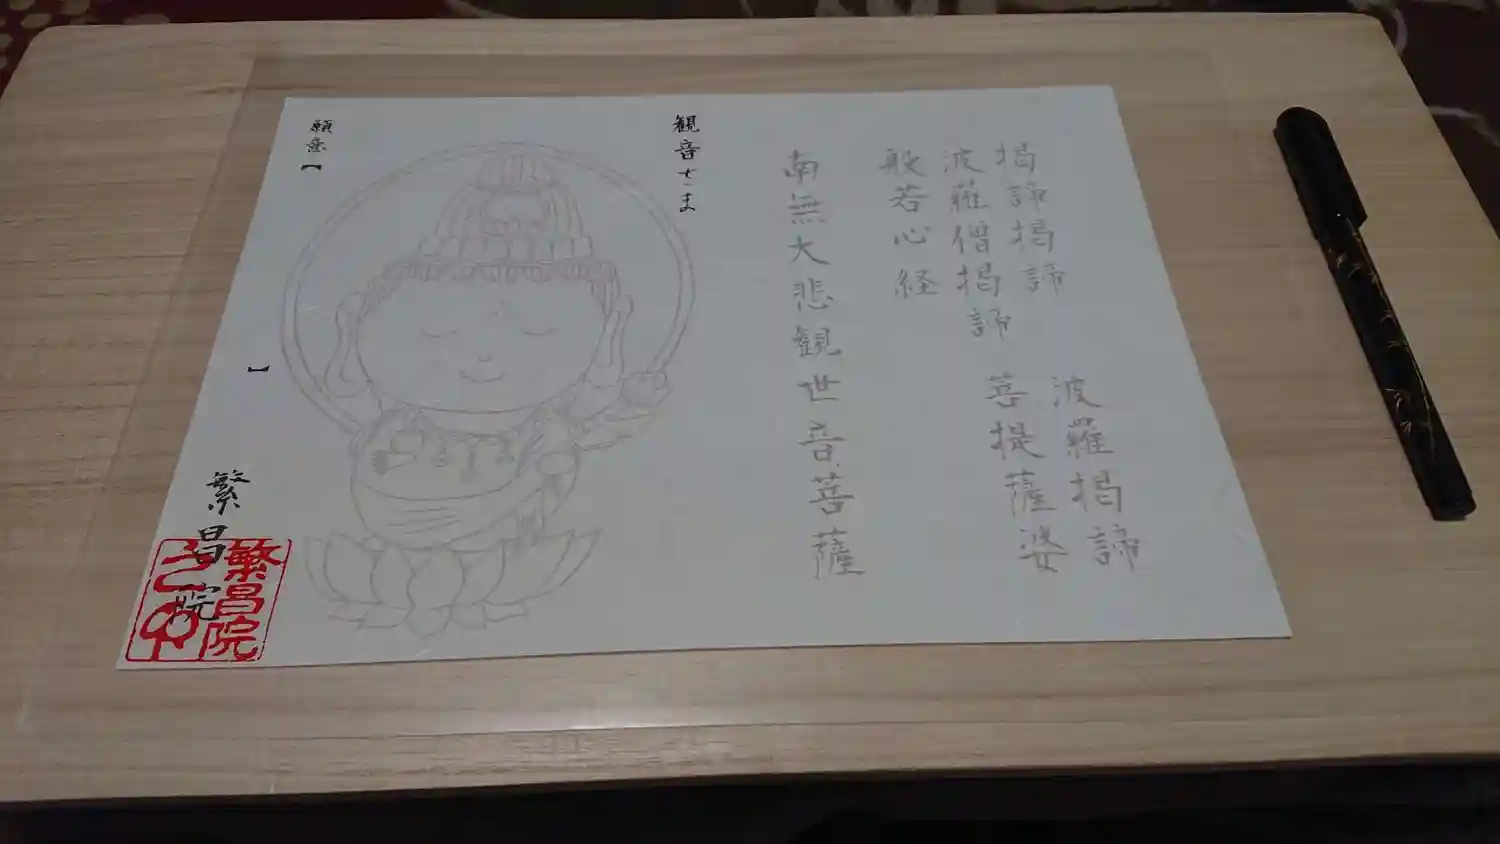 揭諦揭諦 波羅揭諦
波羅僧揭諦 菩提薩婆
般若心経
南無大悲観世音菩薩
観音さま
願意【 】
繁昌院
繁昌院